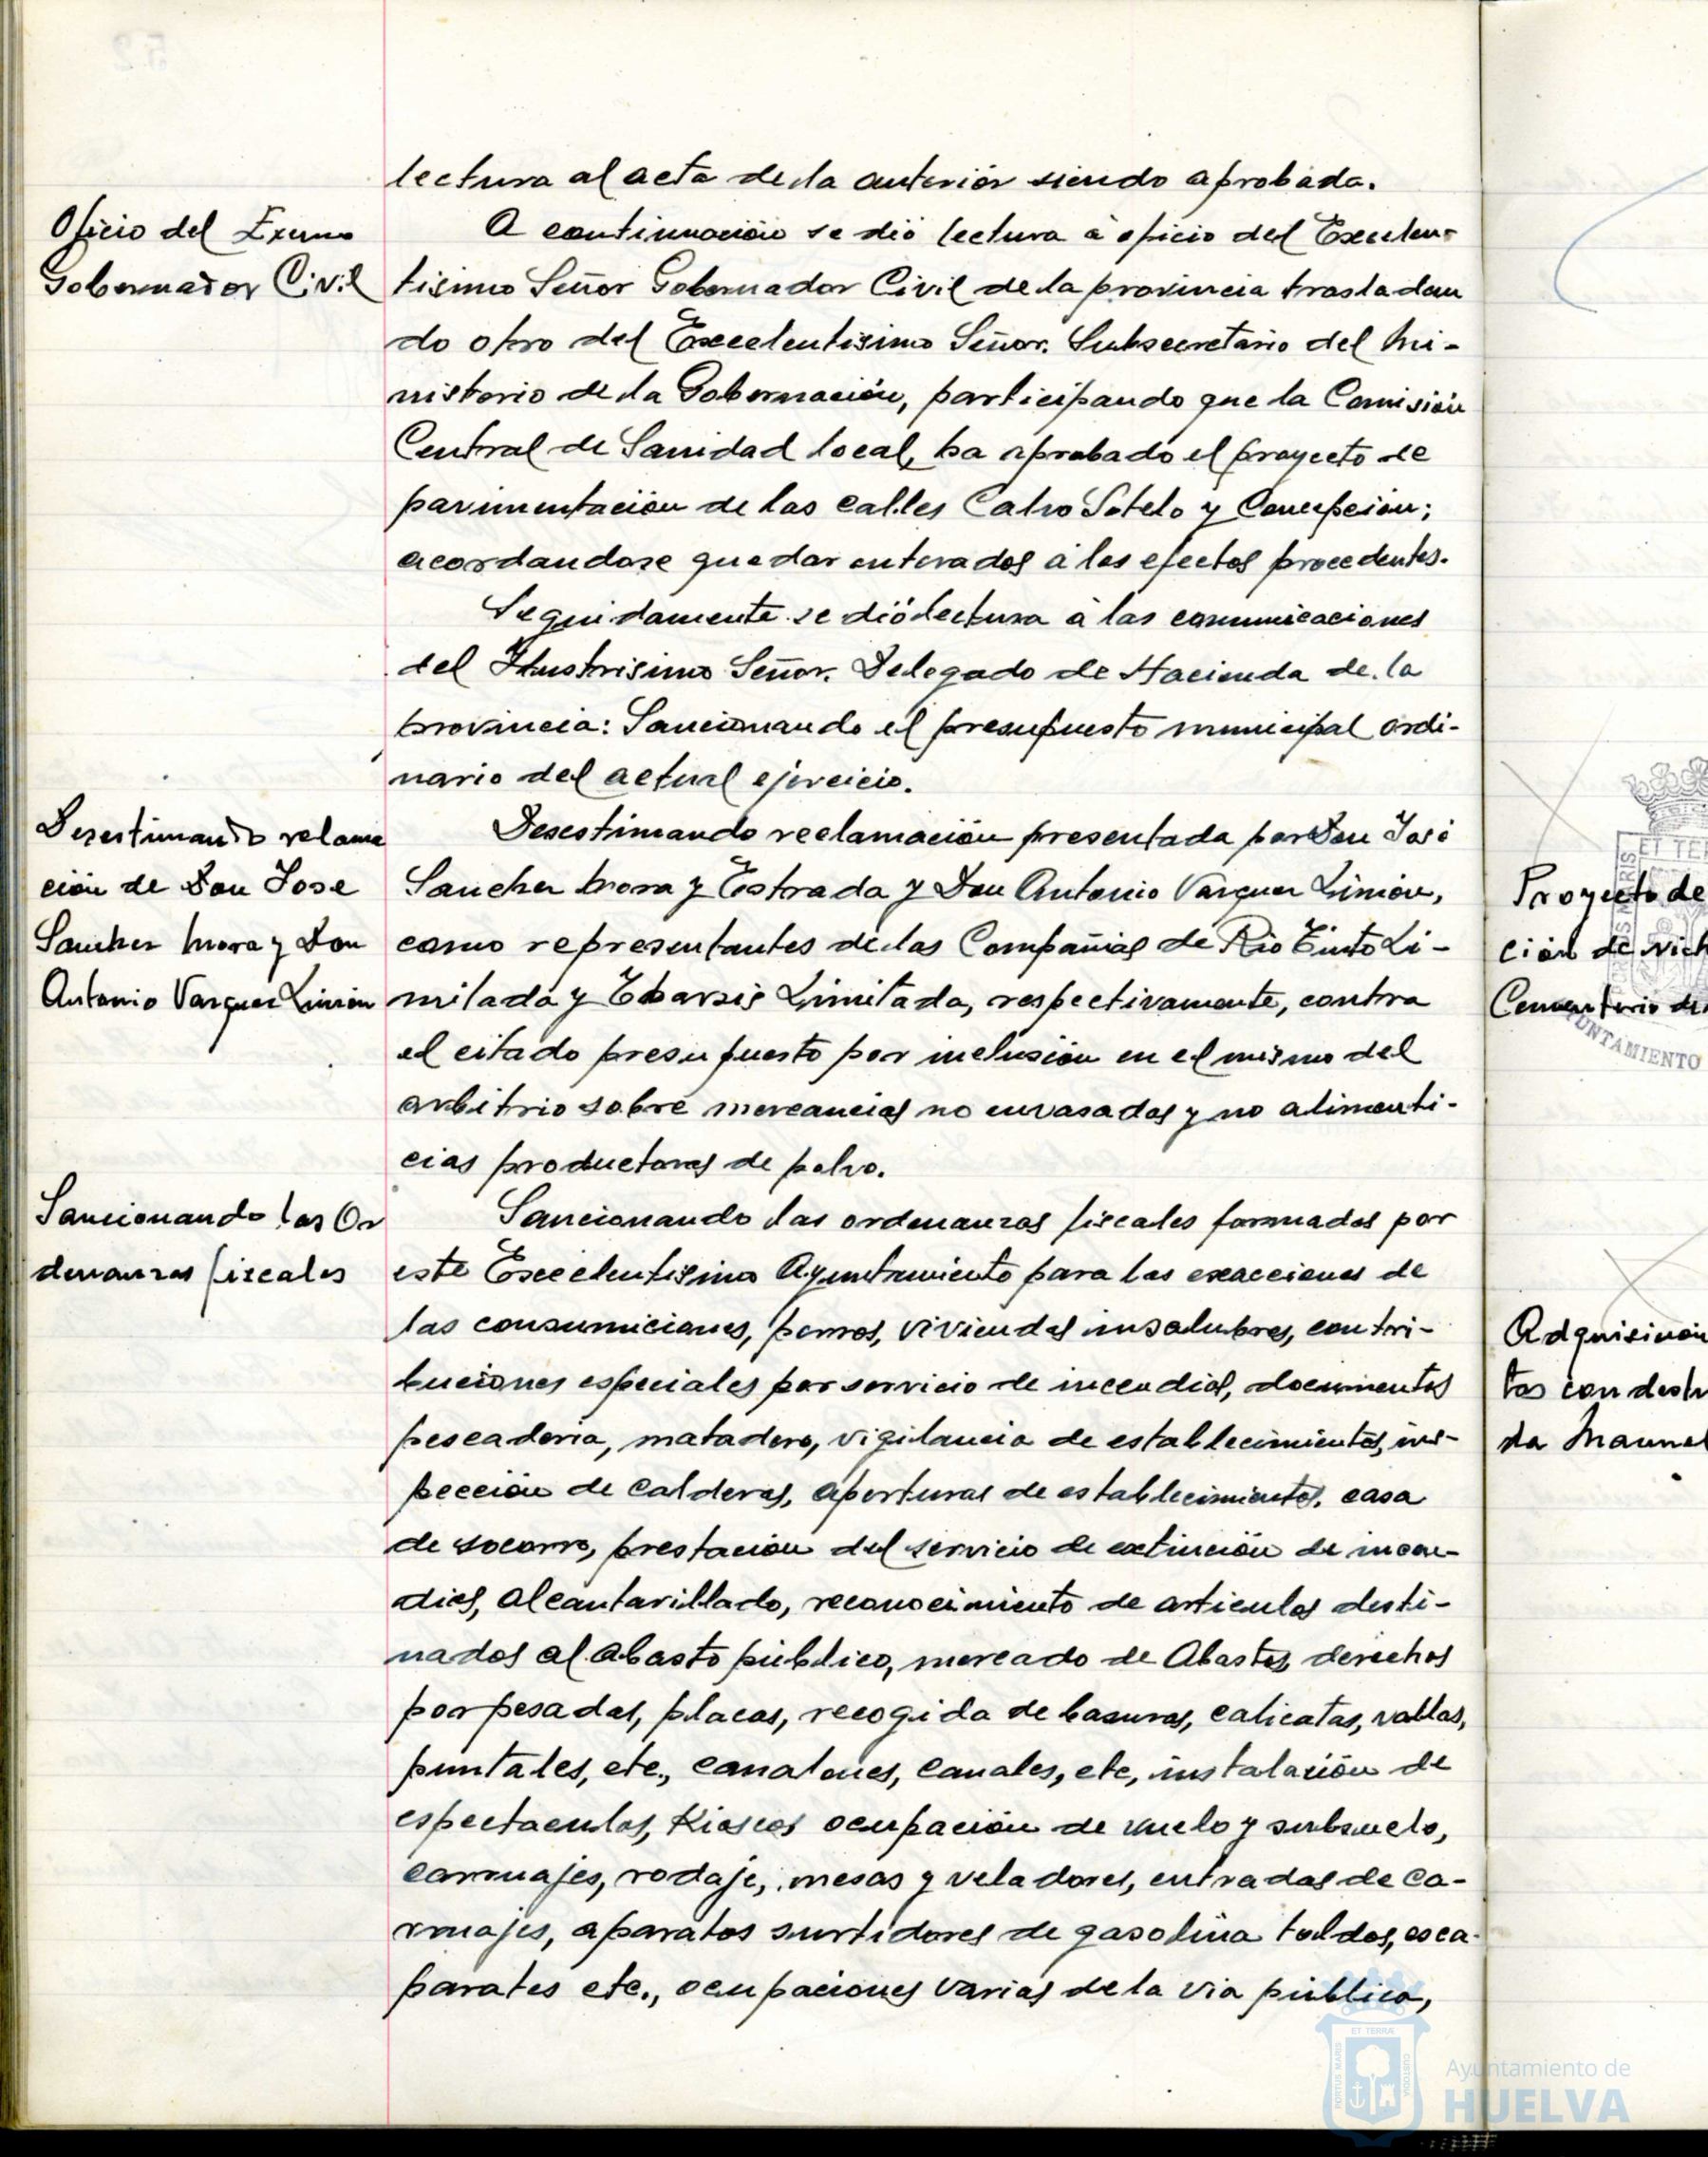 lectura al acta de la anterior siendo aprobada.
Oficio del Excmo
Gobernador Civil
A continuación se dió lectura á oficio del Excelen-
tisimo Señor Gobernador Civil de la provincia trasladan
do otro del Excelentisimo Señor. Subsecretario del Mi-
nisterio de la Gobernación, participando que la Comisión
Central de Sanidad local, ha aprobado el proyecto de
pavimentación de las calles Calvo Sotelo y Concepción;
acordandose quedar enterados á los efectos procedentes.
Seguidamente se dió lectura á las comunicaciones
del Ilustrisimo Señor. Delegado de Hacienda de la
provincia: Sancionando el presupuesto municipal ordi-
nario del actual ejercicio.
Desestimando relama
ción de Don Jose
Sanchez Mora y Don
Antonio Vazquez Limón
Desestimando reclamación presentada por Don José
Sanchez Mora y Estrada y Don Antonio Vázquez Limón,
como representantes de las Compañias de Rio Tinto Li-
mitada y Tharsis Limitada, respectivamente, contra
el citado presupuesto por inclusión en el mismo del
arbitrio sobre mercancias no envasadas y no alimenti-
cias productoras de polvo.
Sancionando las Or
denanzas fiscales
Sancionando las ordenanzas fiscales formadas por
este Excelentisimo Ayuntamiento para las exacciones de
las consumiciones, perros, viviendas insalubres, contri-
buciones especiales por servicio de incendios, documentos
pescaderia, matadero, vigilancia de establecimientos, ins-
pección de calderas, aperturas de establecimientos, casa
de socorro, prestación del servicio de extinción de incen-
dios, alcantarillado, reconocimiento de articulos desti-
nados al abasto público, mercado de Abastos, derechos
por pesadas, placas, recogida de basuras, calicatas, vallas,
puntales, etc., canalones, canales, etc, instalación de
espectaculos, Kioscos ocupación de vuelo y subsuelo,
carruajes, rodaje, mesas y veladores, entradas de ca-
rruajes, aparatos surtidores de gasolina toldos, esca-
parates etc., ocupaciones varias de la via pública,
Proyecto de
ción de nich
Cementerio de
AYUNTAMIENTO
Adquisición
tas con desti
da Manuel
Ayuntamiento de
HUELVA